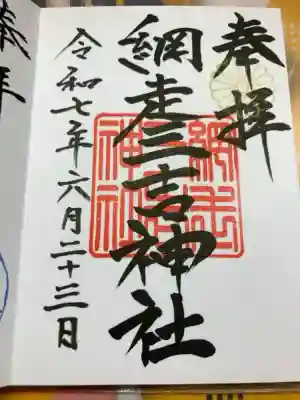 奉拝
網走三吉神社
令和七年六月二十三日
網走
神社
奉拝